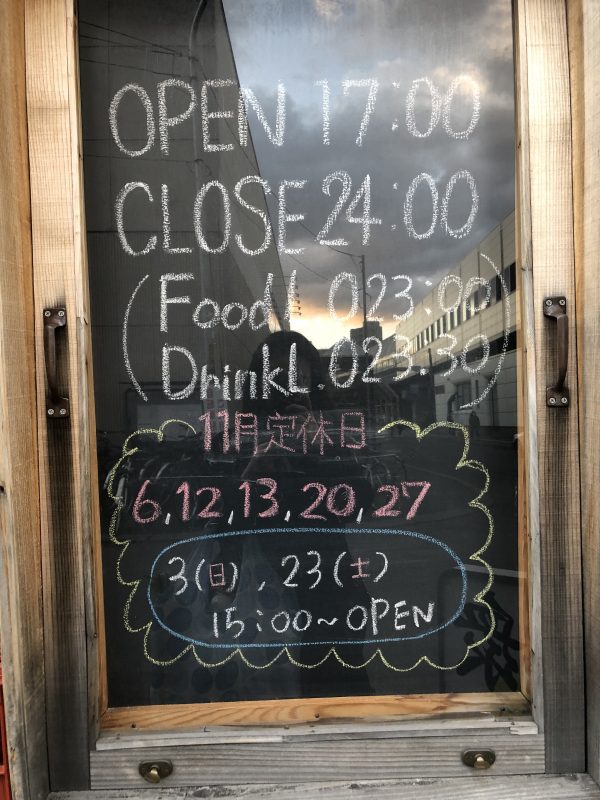 OPEN 17:00
CLOSE 24:00
(Food L.O 23:00
Drink L.O 23.30)
11月定休日
6,12,13,20,27
3(日),23(土)
15:00~OPEN